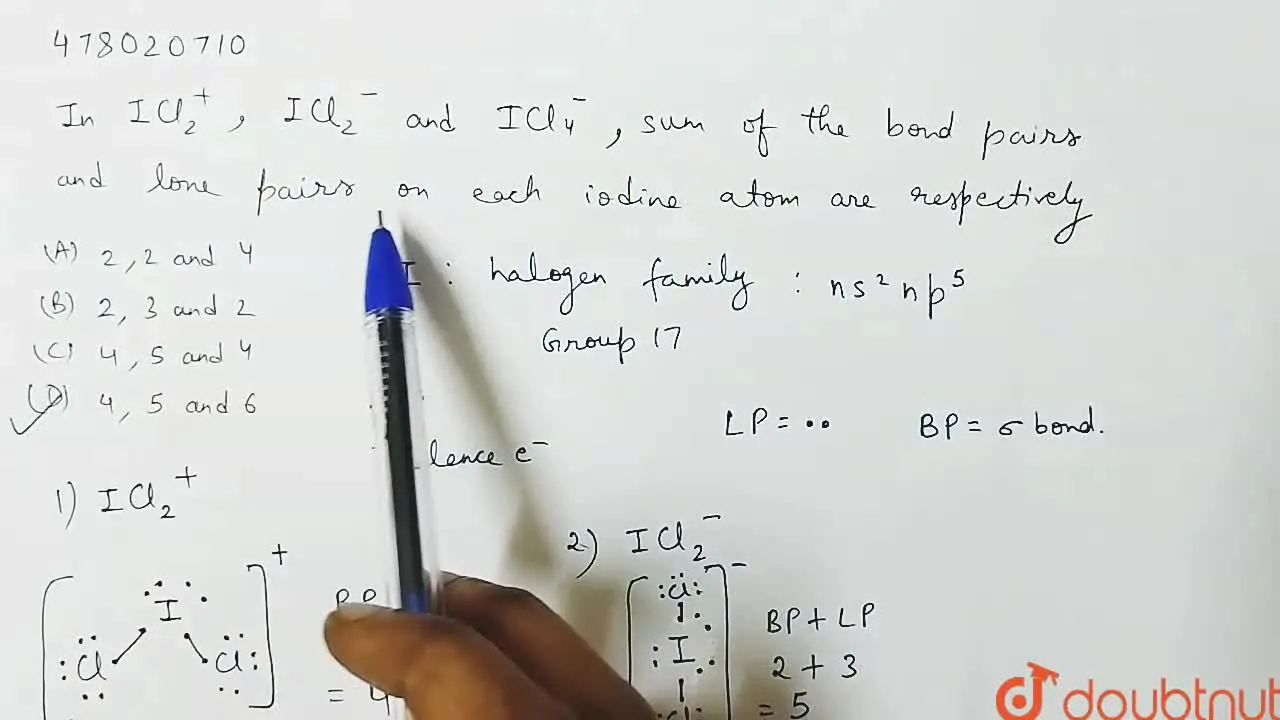 478020710
In ICl₂⁺, ICl₂⁻ and ICl₄⁻, sum of the bond pairs
and lone pairs on each iodine atom are respectively
(A) 2, 2 and 4
(B) 2, 3 and 2
(C) 4, 5 and 4
(D) 4, 5 and 6
I : halogen family : ns² np⁵
Group 17
LP = •• BP = σ bond.
lence e⁻
1) ICl₂⁺
[Cl I Cl]⁺
BP
= 4
2) ICl₂⁻
[Cl I Cl]⁻
BP + LP
2 + 3
= 5
doubtnut